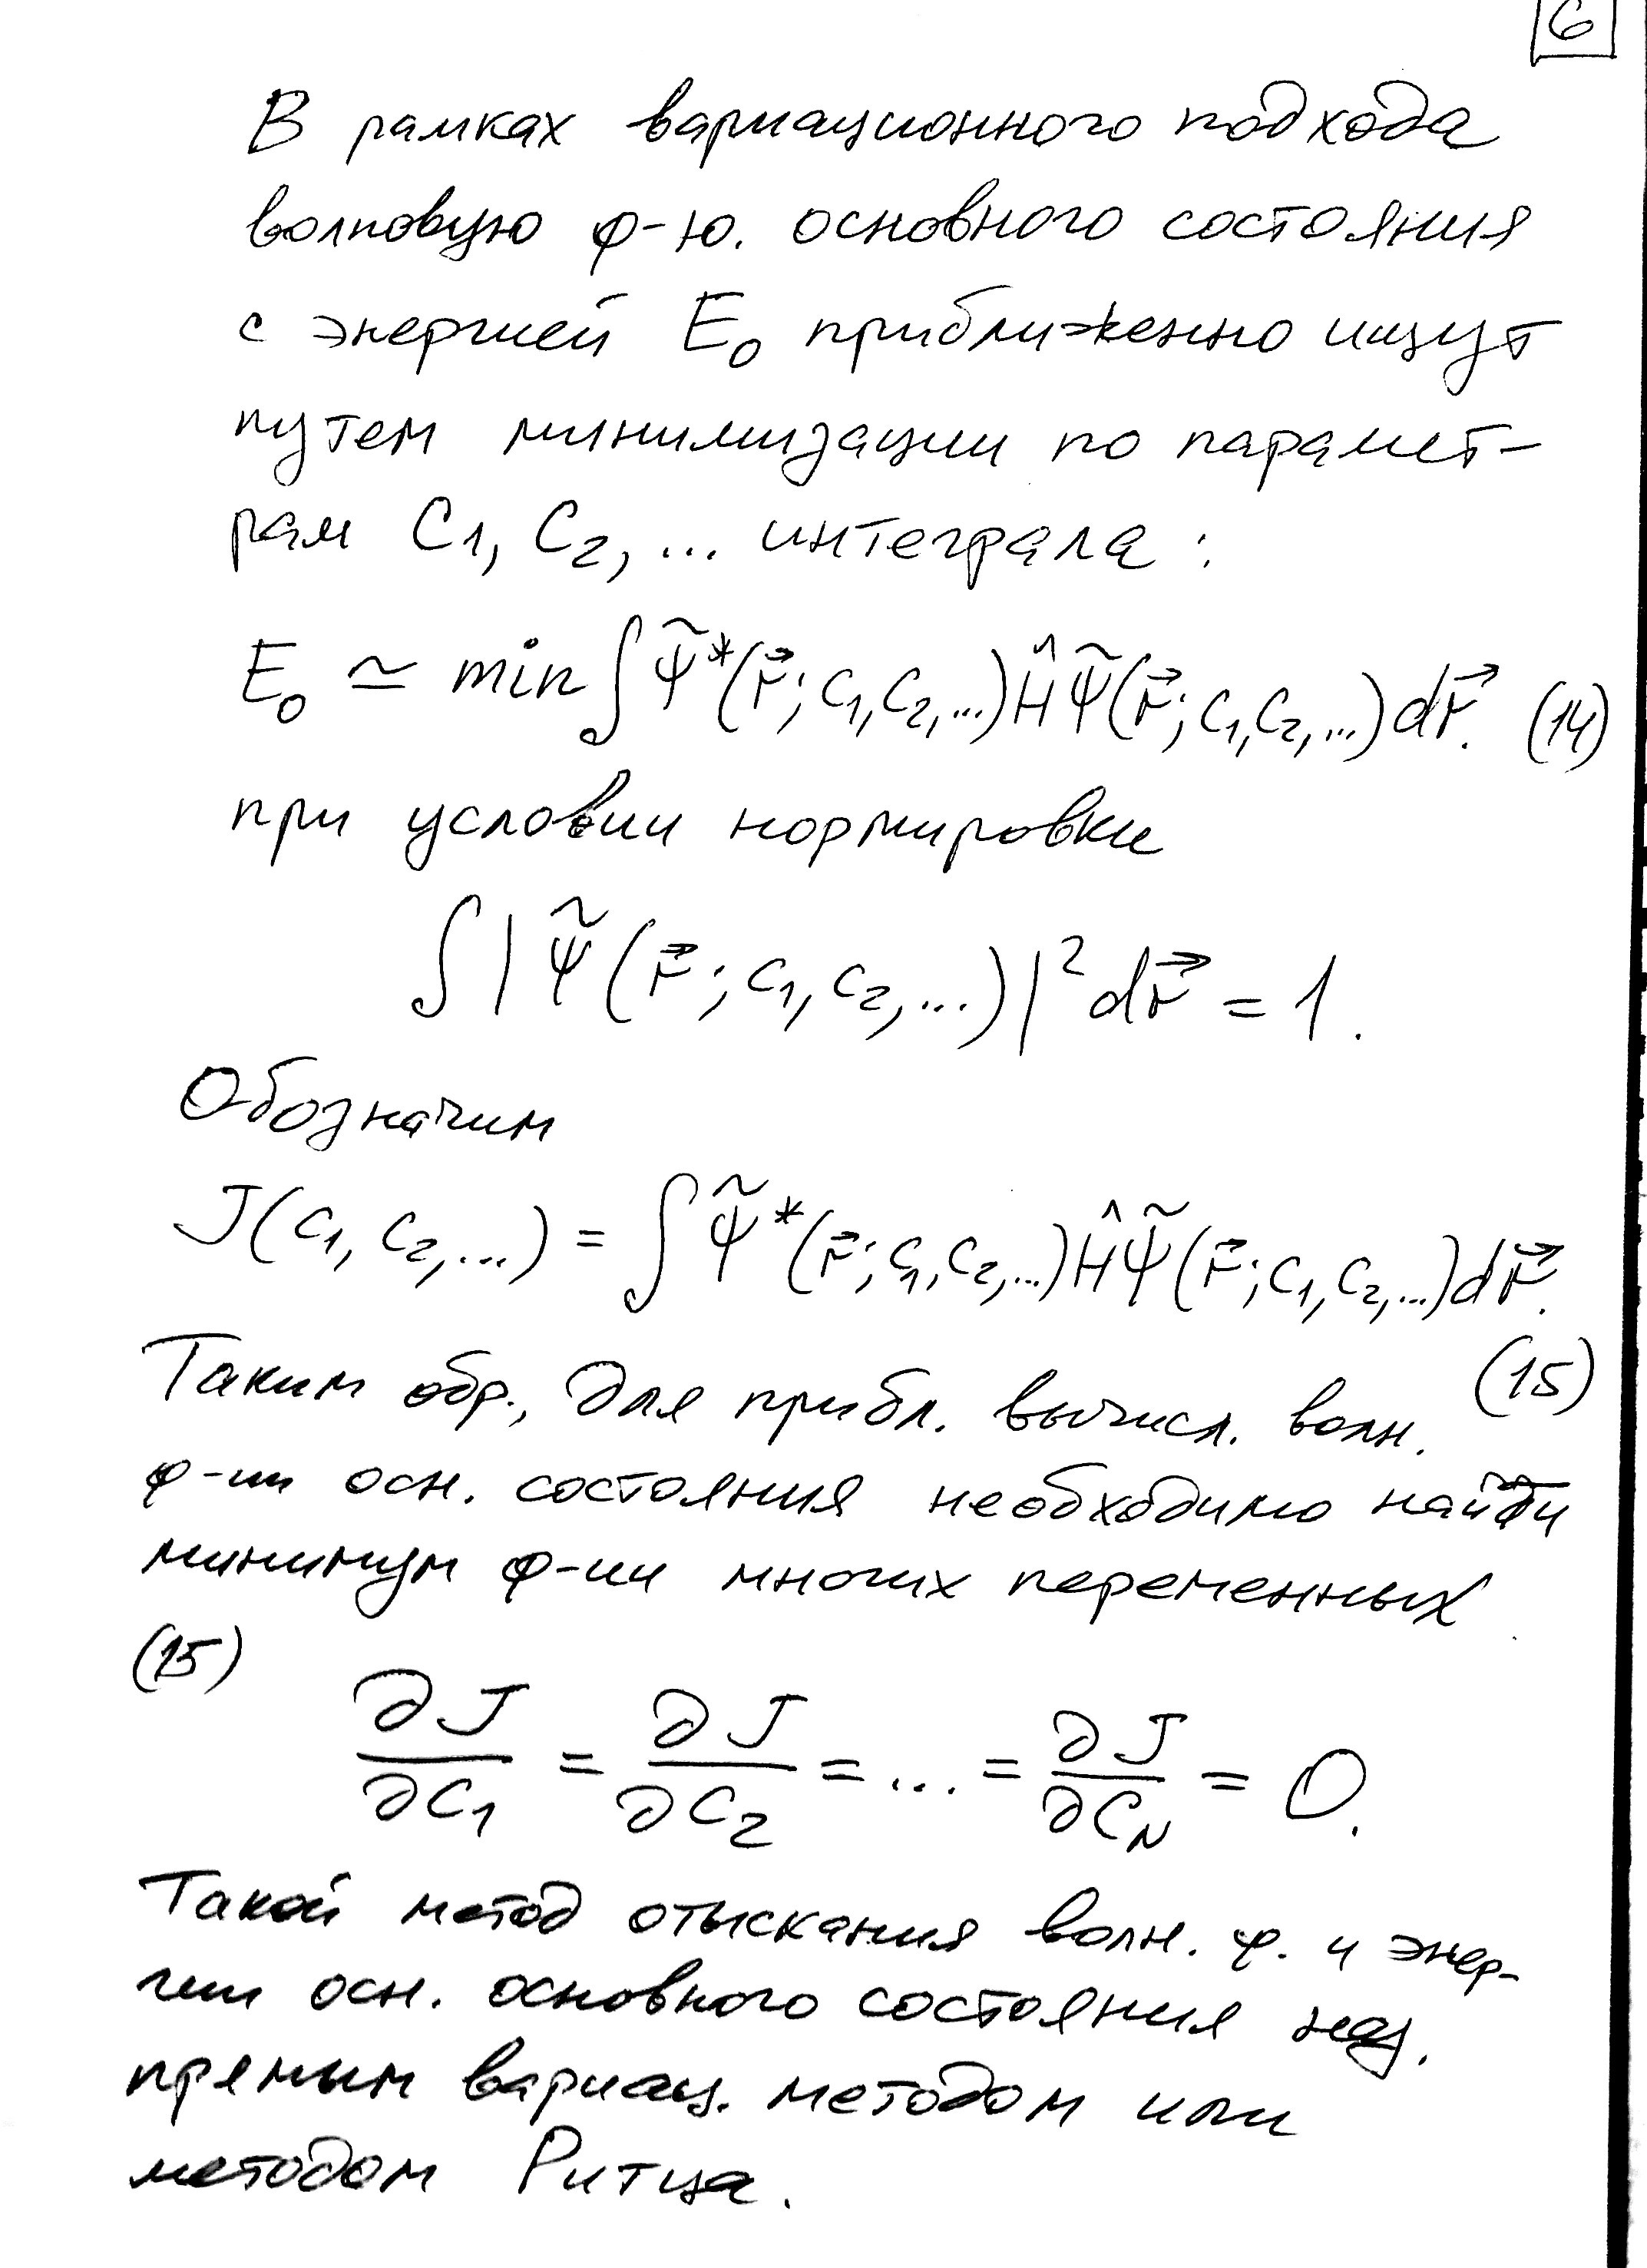 6
В рамках вариационного подхода
волновую ф-ю. основного состояния
с энергией E₀ приближенно ищут
путем минимизации по парамет-
рам C₁, C₂, ... интеграла :
E₀ ≃ min ∫ Ψ̃*(r⃗; C₁, C₂, ...) Ĥ Ψ̃(r⃗; C₁, C₂, ...) dr⃗. (14)
при условии нормировки
∫ | Ψ̃ (r⃗; C₁, C₂, ...) |² dr⃗ = 1.
Обозначим
J(C₁, C₂, ...) = ∫ Ψ̃*(r⃗; C₁, C₂, ...) Ĥ Ψ̃(r⃗; C₁, C₂, ...) dr⃗.
(15)
Таким обр., для прибл. вычисл. волн.
ф-ии осн. состояния необходимо найти
минимум ф-ии многих переменных
(15)
∂J/∂C₁ = ∂J/∂C₂ = ... = ∂J/∂C_N = 0.
Такой метод отыскания волн. ф. и энер-
гии осн. основного состояния наз.
прямым вариац. методом или
методом Ритца.